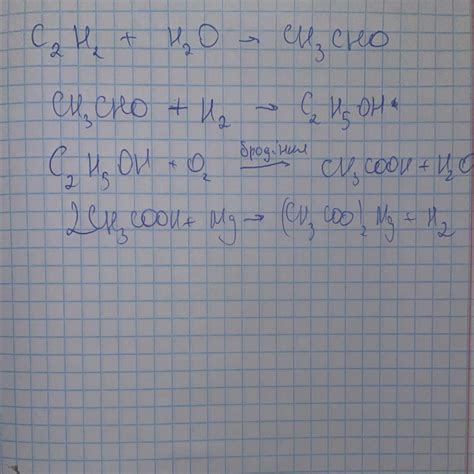 C₂H₂ + H₂O → CH₃CHO
CH₃CHO + H₂ → C₂H₅OH
C₂H₅OH + O₂ →  CH₃COOH + H₂O
2CH₃COOH + Mg → (CH₃COO)₂Mg + H₂